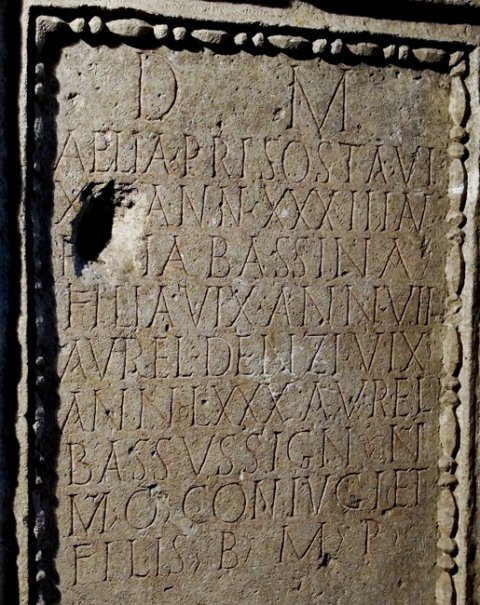 D M
AELIA·PRISOSTA·VI
ANN·XXXIIII
IA BASSINA
FILIA·VIX·ANN·VII
AVREL· VIX
ANN·LXXX·AVREL
BASSVS SIGN N
M·O·CONIVGI ET
FILIS·B·M·P·